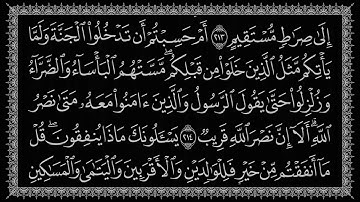 إِلَىٰ صِرَٰطٍ مُّسْتَقِيمٍ ٢١٣ أَمْ حَسِبْتُمْ أَن تَدْخُلُوا۟ ٱلْجَنَّةَ وَلَمَّا
يَأْتِكُم مَّثَلُ ٱلَّذِينَ خَلَوْا۟ مِن قَبْلِكُم ۖ مَّسَّتْهُمُ ٱلْبَأْسَآءُ وَٱلضَّرَّآءُ
وَزُلْزِلُوا۟ حَتَّىٰ يَقُولَ ٱلرَّسُولُ وَٱلَّذِينَ ءَامَنُوا۟ مَعَهُۥ مَتَىٰ نَصْرُ
ٱللَّهِ ۗ أَلَآ إِنَّ نَصْرَ ٱللَّهِ قَرِيبٌ ٢١٤ يَسْـَٔلُونَكَ مَاذَا يُنفِقُونَ ۖ قُلْ
مَآ أَنفَقْتُم مِّنْ خَيْرٍ فَلِلْوَٰلِدَيْنِ وَٱلْأَقْرَبِينَ وَٱلْيَتَٰمَىٰ وَٱلْمَسَٰكِينِ